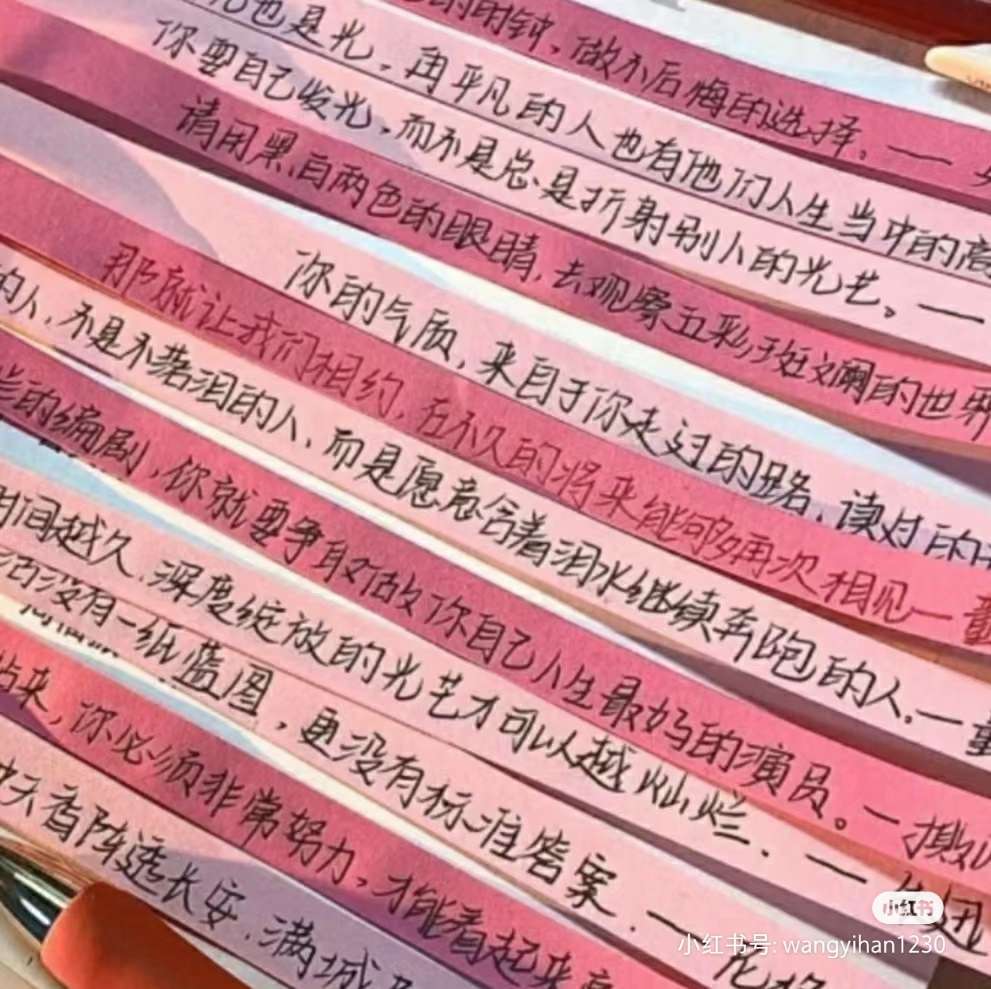 的时钟，做不后悔的选择。——
光也是光，再平凡的人也有他们人生当中的高
你要自己发光，而不是总是折射别人的光艺。——
请用黑白两色的眼睛，去观察五彩斑斓的世界
你的气质，来自于你走过的路，读过的书
那就让我们相约，在不久的将来能够再次相见—董
的人，不是不落泪的人，而是愿意含着泪水继续奔跑的人。—董
能的编剧，你就要争取做你自己人生最妈的演员。—撒
时间越久，深度绽放的光艺才可以越灿烂。——
活没有一纸蓝图，更没有标准答案——龙
起来，你必须非常努力，才能看起来
冲天香阵透长安，满城
小红书
小红书号: wangyihan1230